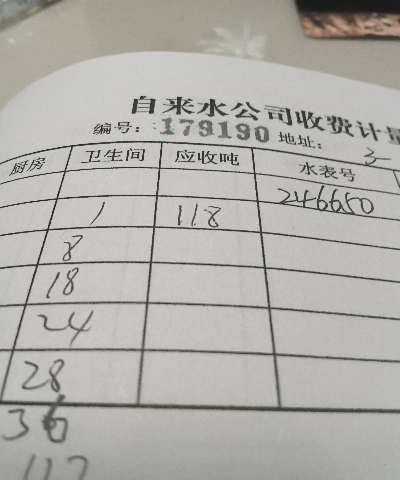 自来水公司收费计量
编号: 179190 地址: 3
厨房 卫生间 应收吨 水表号
246650
1 118
8
18
24
28
36